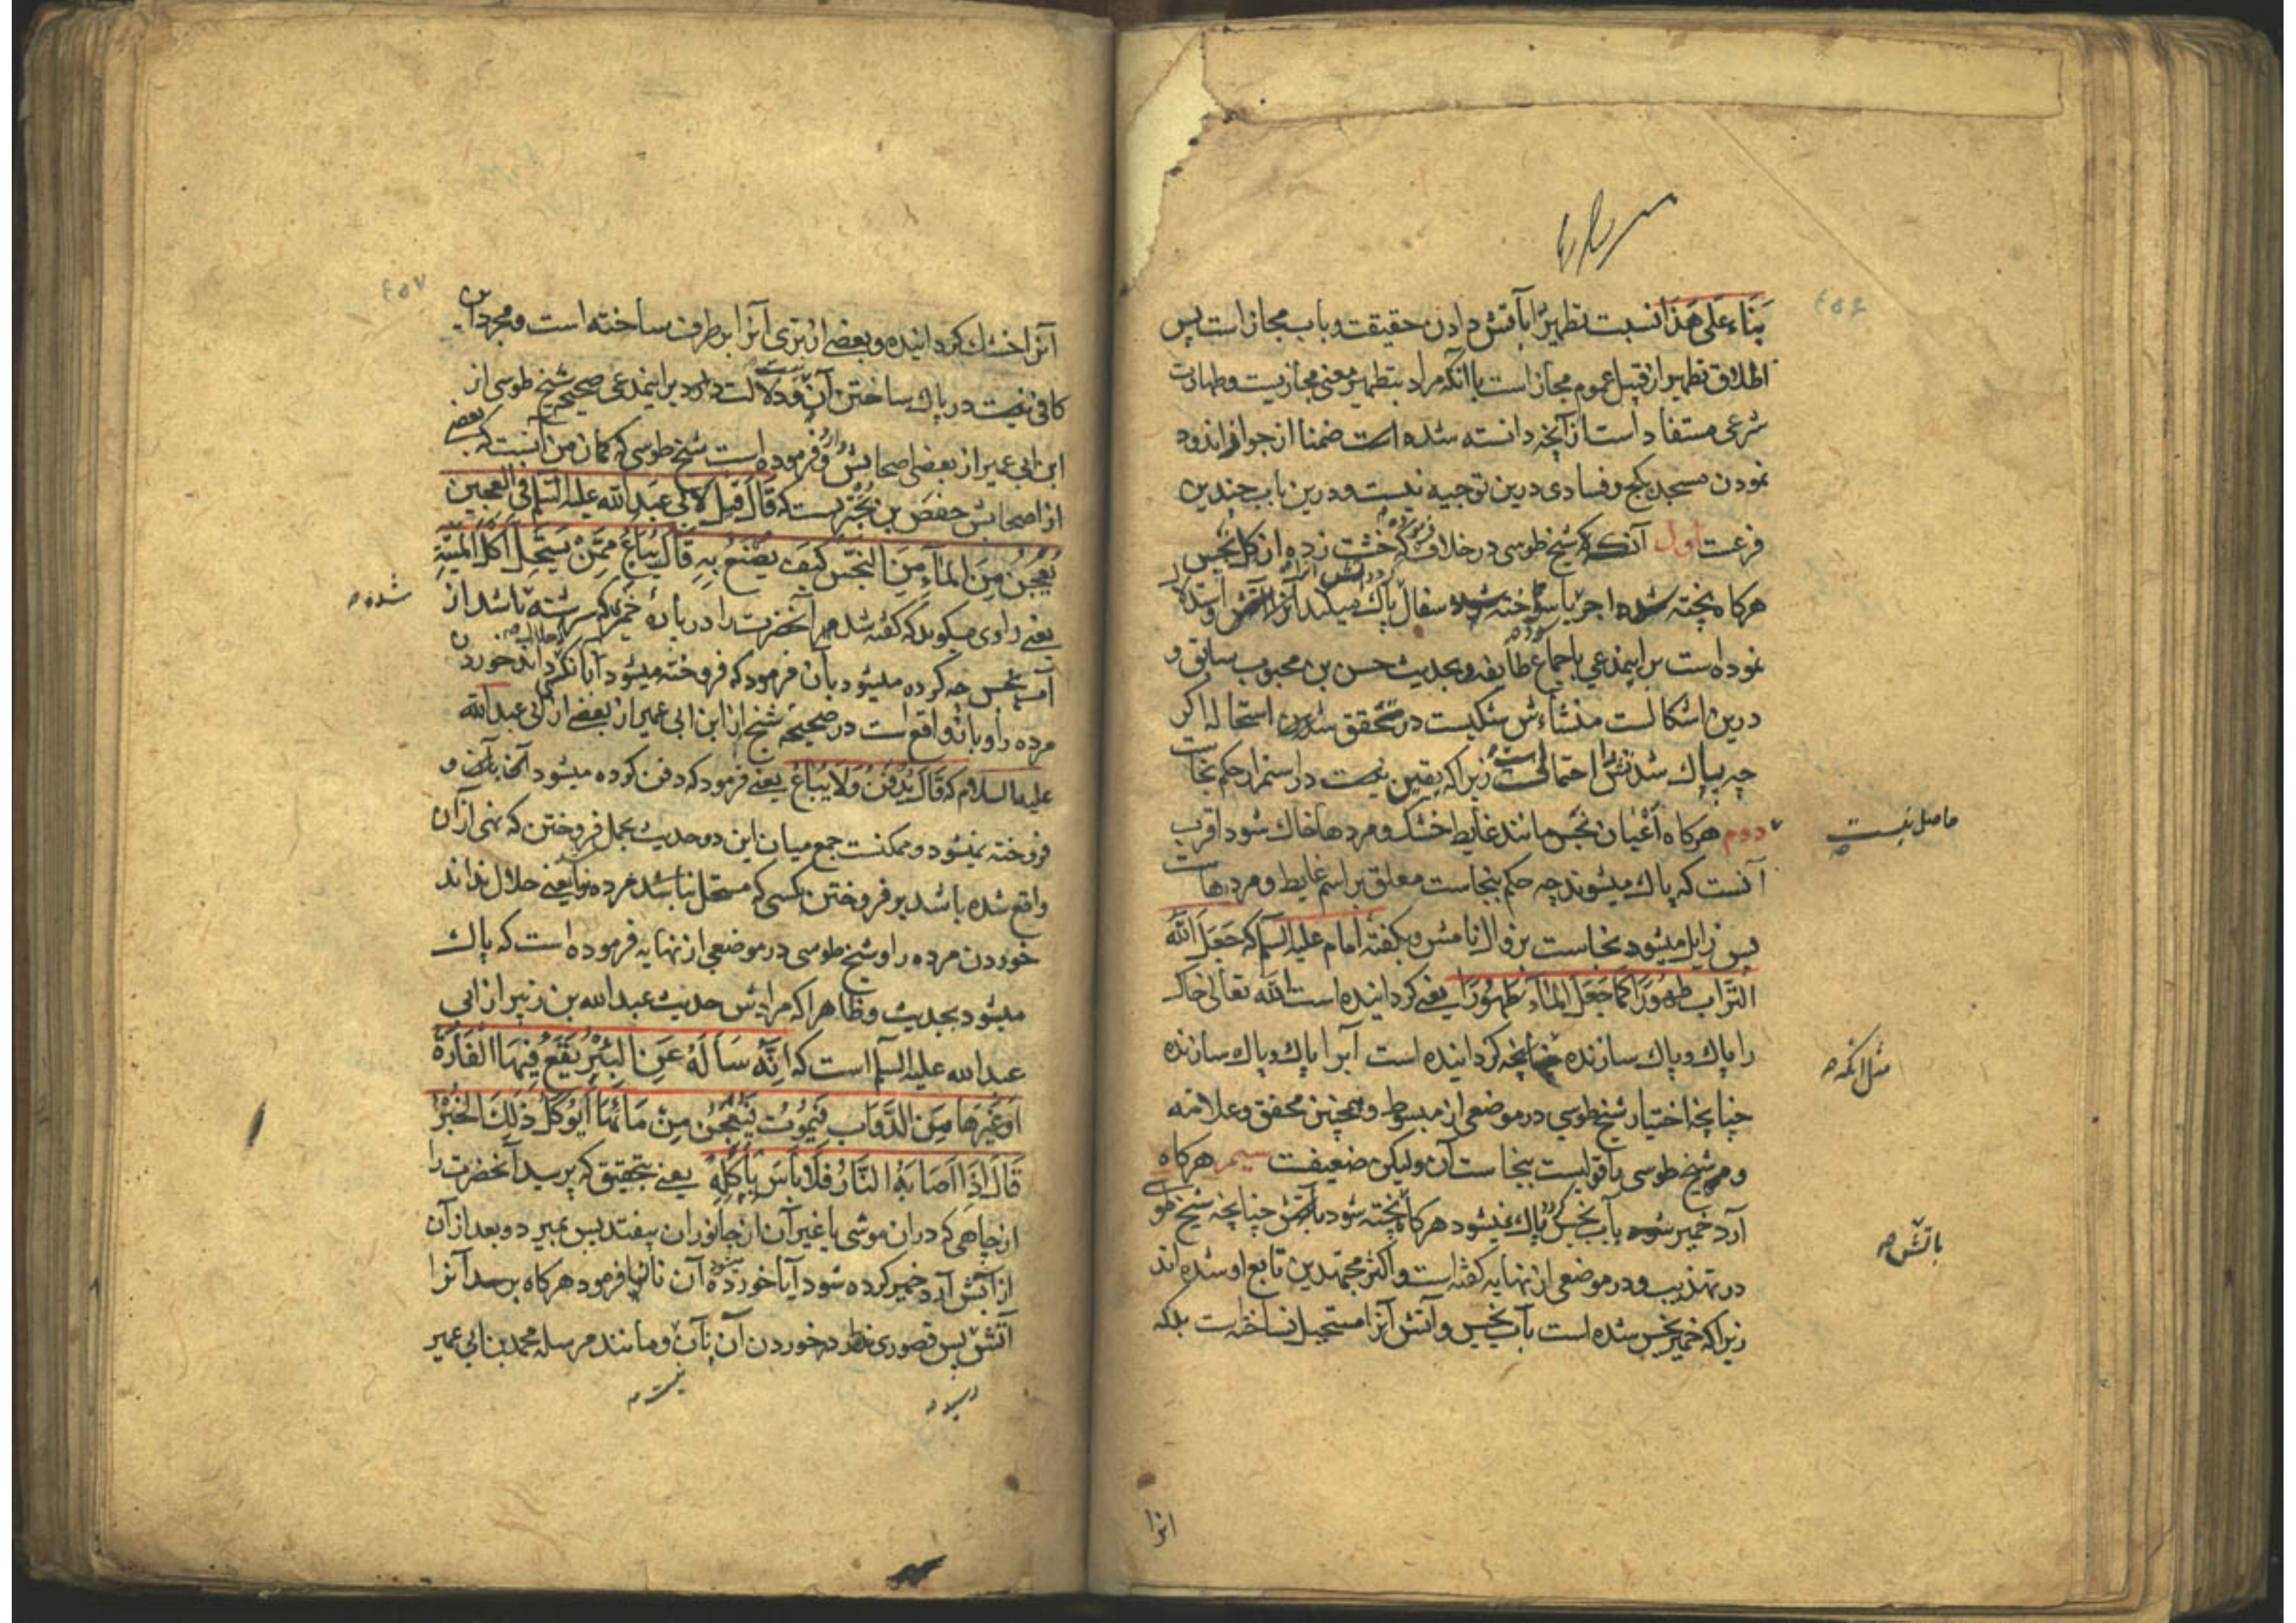 ٤٥٦
بناء علی هذا نسبت تطهیر بآتش دادن حقیقت و باب مجاز است پس
اطلاق تطهیر از قبیل عموم مجاز است با آنکه مراد بتطهیر معنی مجازیست و طهارت
شرعی مستفاد است از آنچه دانسته شده است ضمنا از جواز اندود
نمودن مسجد بکج و فسادی درین توجیه نیست و درین باب چندین
فرعست اول آنکه شیخ طوسی در خلاف فرموده که خشت زده از کل نجس
هرکاه پخته شده اجر یا سوخته سفال پاک میکند آنرا و استدلال
نموده است بر اینمدعی باجماع طایفه و بحدیث حسن بن محبوب سابق و
درین اشکالست منشاءش شکیست در متحقق شدن استحاله اکر
چه پاک شدنش را احتمالی است زیراکه یقین نیست در استمرار حکم نجاست
حاصل نیست
دوم هرکاه اعیان نجس مانند غایط خشک و مردها خاک شود اقرب
آنست که پاک میشوند چه حکم بنجاست معلق بر اسم غایط و مردهاست
پس زایل میشود نجاست بزوال نامش و بکفته امام علیه السلم که جعل الله
التراب طهورا کما جعل الماء طهورا یعنی کردانیده است الله تعالی خاک
را پاک و پاک سازنده چنانچه کردانیده است آبرا پاک و پاک سازنده
مثل انکه
چنانچه اختیار شیخ طوسی در موضعی از مبسوط و همچنین محقق و علامه
و هم شیخ طوسی یا قولیست بنجاست آن و لیکن ضعیفست سیم هرکاه
آرد خمیر شود بآب نجس پاک نمیشود هرکاه پخته شود بآتش چنانچه شیخ طوسی
باتش
در تهذیب و در موضعی از نهایه کفته است و اکثر مجتهدین تابع او شده اند
زیراکه خمیر نجس شده است بآب نجس و آتش آنرا مستحیل نساخته است بلکه
انرا
٤٥٧
آنرا خشک کردانیده و بعضی از تری آنرا بر طرف ساخته است و مجرد این
کافی نیست در پاک ساختن آن و دلالت دارد بر اینمدعی صحیح شیخ طوسی از
ابن ابی عمیر از بعضی اصحابش و فرموده است شیخ طوسی که کمان من آنست که بعضی
از اصحابش حفص بن بختریست که قال قیل لابی عبدالله علیه السلم فی العجین
یعجن من الماء من النجس کیف یصنع به قال یباع ممن یستحل اکل المیتة
یعنی راوی میکوید که کفته شد مر آنحضرت را درباره خمیر که سرشته باشد از
شده
آب نجس چه کرده میشود بان فرمود که فروخته میشود بانکسی که حلال داند خوردن
مرده را و باز واقع است در صحیحه شیخ از ابن ابی عمیر از بعضی از ابی عبدالله
علیه السلام که قال یدفن و لا یباع یعنی فرمود که دفن کرده میشود آنخمیر و
فروخته نمیشود و ممکنست جمع میان این دو حدیث بحمل فروختن که نهی از آن
واقع شده باشد بر فروختن بکسی که مستحل نباشد مرده را یعنی حلال نداند
خوردن مرده را و شیخ طوسی در موضعی از نهایه فرموده است که پاک
میشود بحدیث و ظاهرا که مرادش حدیث عبدالله بن زبیر از ابی
عبدالله علیه السلم است که انه ساله عن البئر یقع فیها الفارة
او غیرها من الدواب فیموت فیعجن من مائها ایوکل ذلک الخبز
قال اذا اصابة النار فلا باس باکله یعنی بتحقیق که پرسید آنحضرت را
از چاهی که در ان موشی یا غیر آن از جانوران بیفتد پس بمیرد و بعد از آن
از آبش آرد خمیر کرده شود آیا خورده میشود آن نان فرمود هرکاه برسد آنرا
آتش پس قصوری ندارد در خوردن آن نان و مانند مرسله محمد بن ابی عمیر
نیست